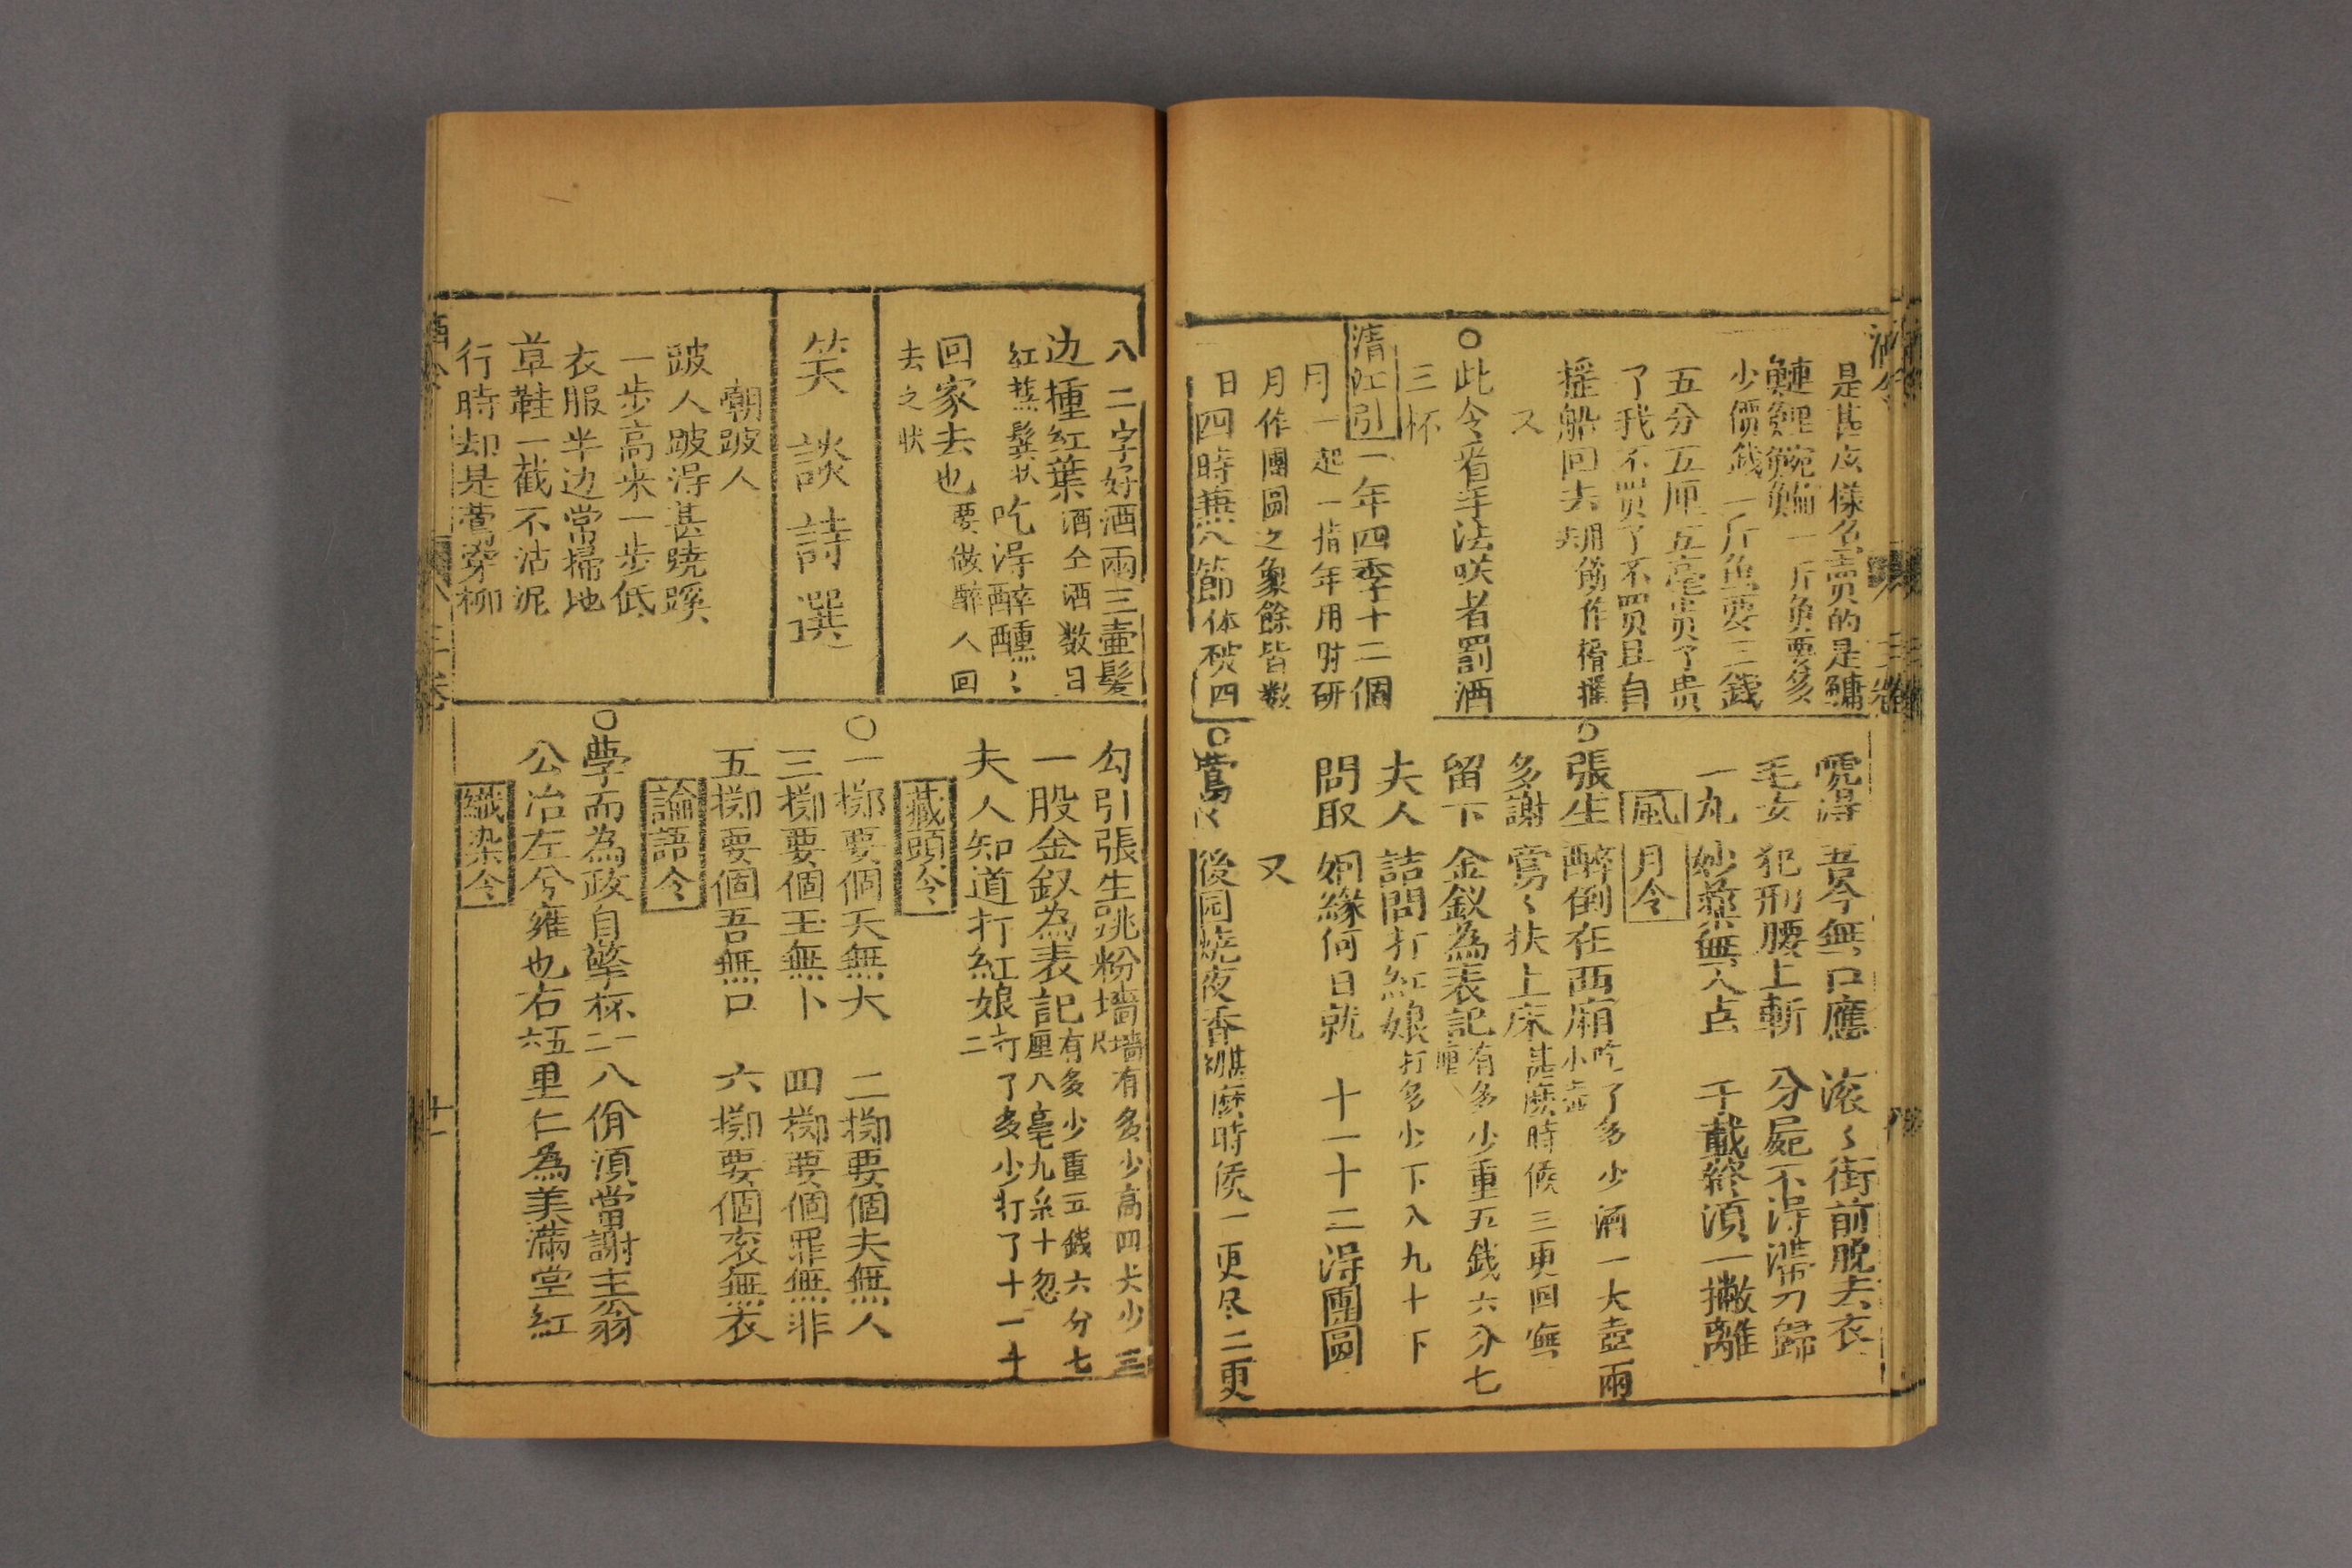 是甚広樣名買的是鱅
鰱鯉鯇鯿一斤魚要多
少價錢一斤魚要三錢
五分五厘五毫貴了貴
了我不買了不買且自
搖船回去
又
此令看手法咲者罰酒
三杯
清江引一年四季十二個
月一起一指年用財研
月作團圓之象餘皆数
日四時兼八節体破四
唬得 吾今無口應 滚〻街前脫去衣
毛女 犯刑腰上斬 分屍不得滞刀歸
一丸 妙藥無人占 千載終須一撇離
風月令
張生 醉倒在西廂吃了多少酒一大壺兩小壺
多謝 鶯〻扶上床甚麽時候三更回
留下 金釵為表記有多少重五錢六分七厘
夫人 詰問打紅娘打多少下八九十下
問取 姻緣何日就 十一十二得團圓
又
鶯〻 後园燒夜香甚麽時候一更尽二更
八二字好酒兩三壷髪
边挿紅葉酒仝酒数日
吃得醉醺〻
回家去也要做醉人回
去之状
笑談詩選
嘲跛人
跛人跛得甚蹺蹊
一步高来一步低
衣服半边常掃地
草鞋一截不沾泥
行時却是鶯穿柳
勾引張生跳粉墻墻有多少高四丈少三尺
一股金釵為表記有多少重五錢六分七厘八毫九糸十忽
夫人知道打紅娘打了多少打了十一十二
藏頭令
一擲要個天無大 二擲要個夫無人
三擲要個玉無卜 四擲要個罪無非
五擲要個吾無口 六擲要個衣無衣
論語令
學而為政自擎杯一二八佾須當謝主翁
公冶左兮雍也右五六里仁為美滿堂紅
織染令
三卷
十一